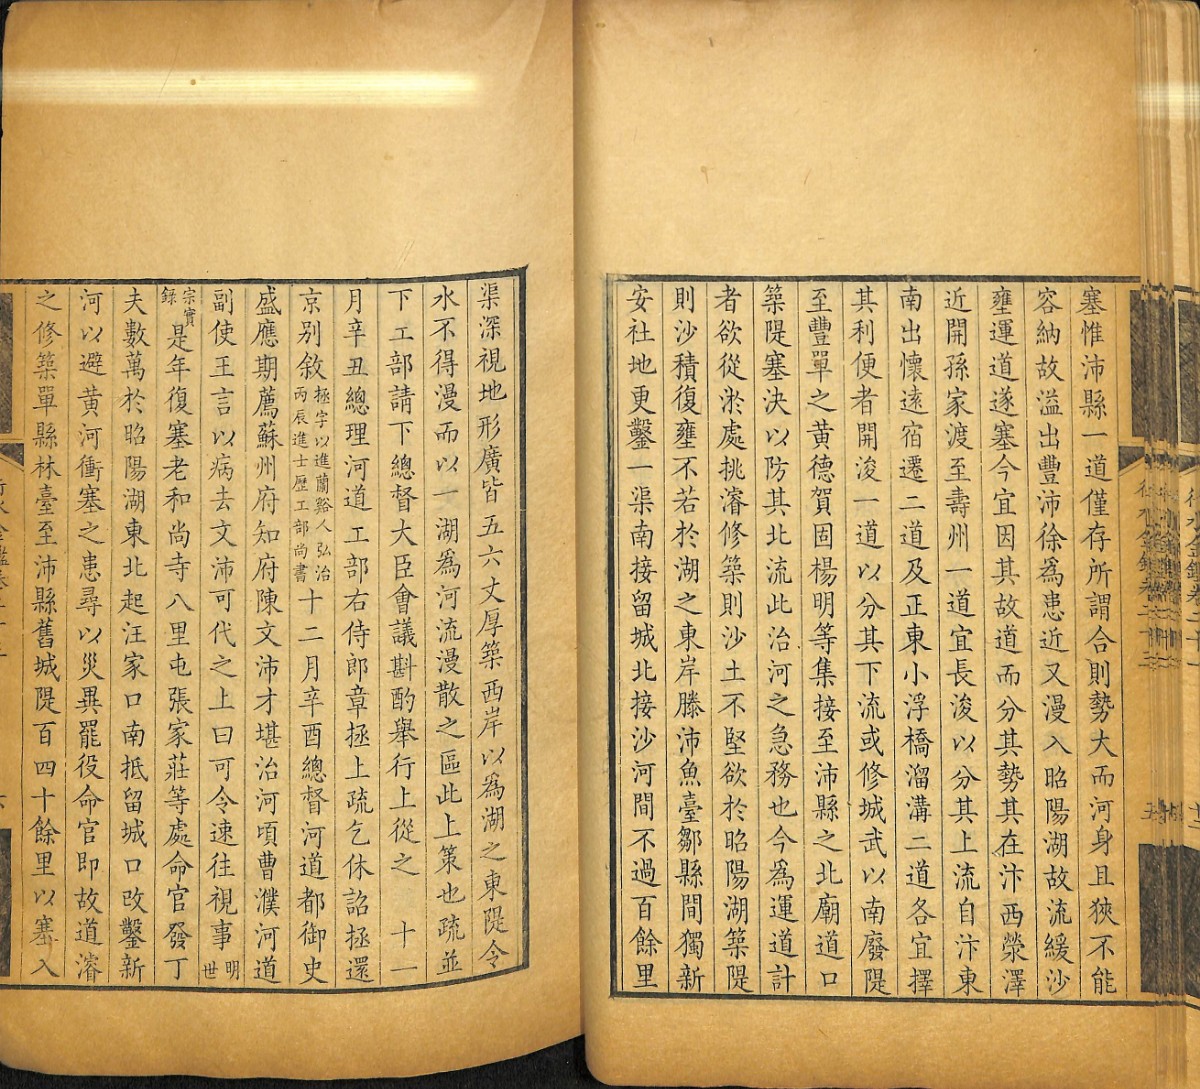 塞惟沛縣一道僅存所謂合則勢大而河身且狹不能
容納故溢出豐沛徐爲患近又漫入昭陽湖故流緩沙
壅運道遂塞今宜因其故道而分其勢其在汴西滎澤
近開孫家渡至壽州一道宜長浚以分其上流自汴東
南出懷遠宿遷二道及正東小浮橋溜溝二道各宜擇
其利便者開浚一道以分其下流或修城武以南廢隄
至豐單之黄德賀固楊明等集接至沛縣之北廟道口
築隄塞決以防其北流此治河之急務也今爲運道計
者欲從淤處挑濬修築則沙土不堅欲於昭陽湖築隄
則沙積復壅不若於湖之東岸滕沛魚臺鄒縣間獨新
安社地更鑿一渠南接留城北接沙河間不過百餘里
渠深視地形廣皆五六丈厚築西岸以爲湖之東隄令
水不得漫而以一湖爲河流漫散之區此上策也疏並
下工部請下總督大臣會議斟酌舉行上從之　十一
月辛丑總理河道工部右侍郎章拯上疏乞休詔拯還
京别敘拯字以進蘭谿人弘治丙辰進士歷工部尚書十二月辛酉總督河道都御史
盛應期薦蘇州府知府陳文沛才堪治河頃曹濮河道
副使王言以病去文沛可代之上曰可令速往視事明世
宗實錄是年復塞老和尚寺八里屯張家莊等處命官發丁
夫數萬於昭陽湖東北起汪家口南抵留城口改鑿新
河以避黄河衝塞之患尋以災異罷役命官即故道濬
之修築單縣林臺至沛縣舊城隄百四十餘里以塞入